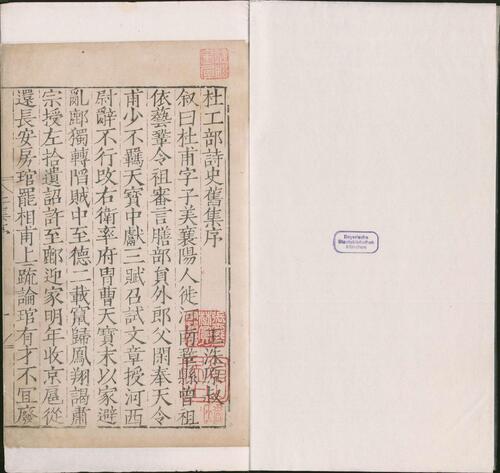 杜工部詩史舊集序
王洙原叔
叙曰杜甫字子美襄陽人徙河南鞏縣曾祖
依藝鞏令祖審言膳部貟外郎父閑奉天令
甫少不羈天寳中獻三賦召試文章授河西
尉辭不行改右衛率府胄曹天寳末以家避
亂鄜獨轉陷賊中至德二載竄歸鳳翔謁肅
宗授左拾遺詔許至鄜迎家明年收京扈從
還長安房琯罷相甫上疏論琯有才不冝廢
Bayerische
Staatsbibliothek
München